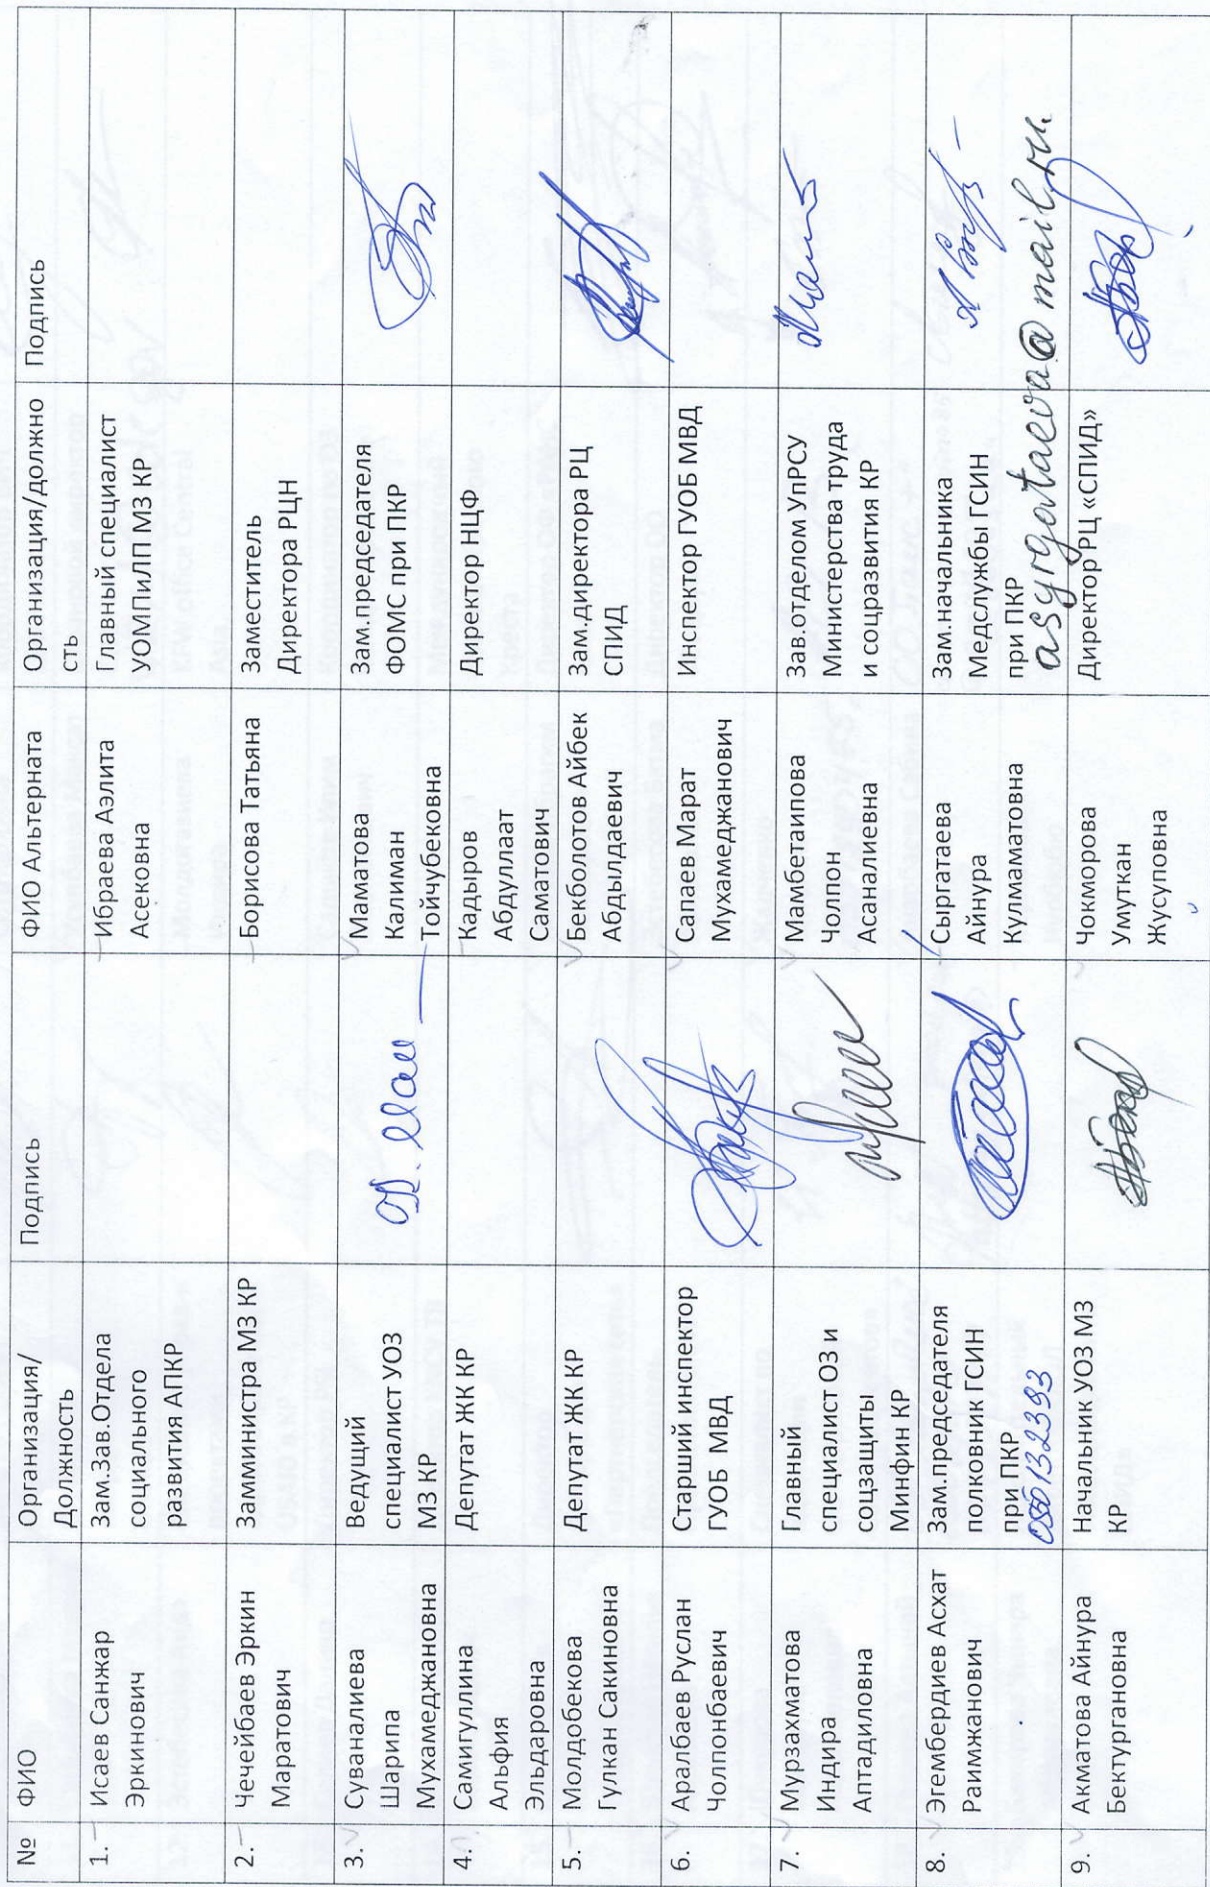 №
ФИО
Организация/
Должность
Подпись
ФИО Альтерната
Организация/должно
сть
Подпись
1.
Исаев Санжар
Эркинович
Зам.Зав.Отдела
социального
развития АПКР
Ибраева Аэлита
Асековна
Главный специалист
УОМПиЛП МЗ КР
2.
Чечейбаев Эркин
Маратович
Замминистра МЗ КР
Борисова Татьяна
Заместитель
Директора РЦН
3.
Суваналиева
Шарипа
Мухамеджановна
Ведущий
специалист УОЗ
МЗ КР
Маматова
Калиман
Тойчубековна
Зам.председателя
ФОМС при ПКР
4.
Самигуллина
Альфия
Эльдаровна
Депутат ЖК КР
Кадыров
Абдуллаат
Саматович
Директор НЦФ
5.
Молдобекова
Гулкан Сакиновна
Депутат ЖК КР
Бекболотов Айбек
Абдылдаевич
Зам.директора РЦ
СПИД
6.
Аралбаев Руслан
Чолпонбаевич
Старший инспектор
ГУОБ МВД
Сапаев Марат
Мухамеджанович
Инспектор ГУОБ МВД
7.
Мурзахматова
Индира
Аптадиловна
Главный
специалист ОЗ и
соцзащиты
Минфин КР
Мамбетаипова
Чолпон
Асаналиевна
Зав.отделом УпРСУ
Министерства труда
и соцразвития КР
8.
Эгембердиев Асхат
Раимжанович
Зам.председателя
полковник ГСИН
при ПКР
Сыргатаева
Айнура
Кулматовна
Зам.начальника
Медслужбы ГСИН
при ПКР
asyrgataeva@mail.ru
9.
Акматова Айнура
Бектургановна
Начальник УОЗ МЗ
КР
Чокморова
Умуткан
Жусуповна
Директор РЦ «СПИД»